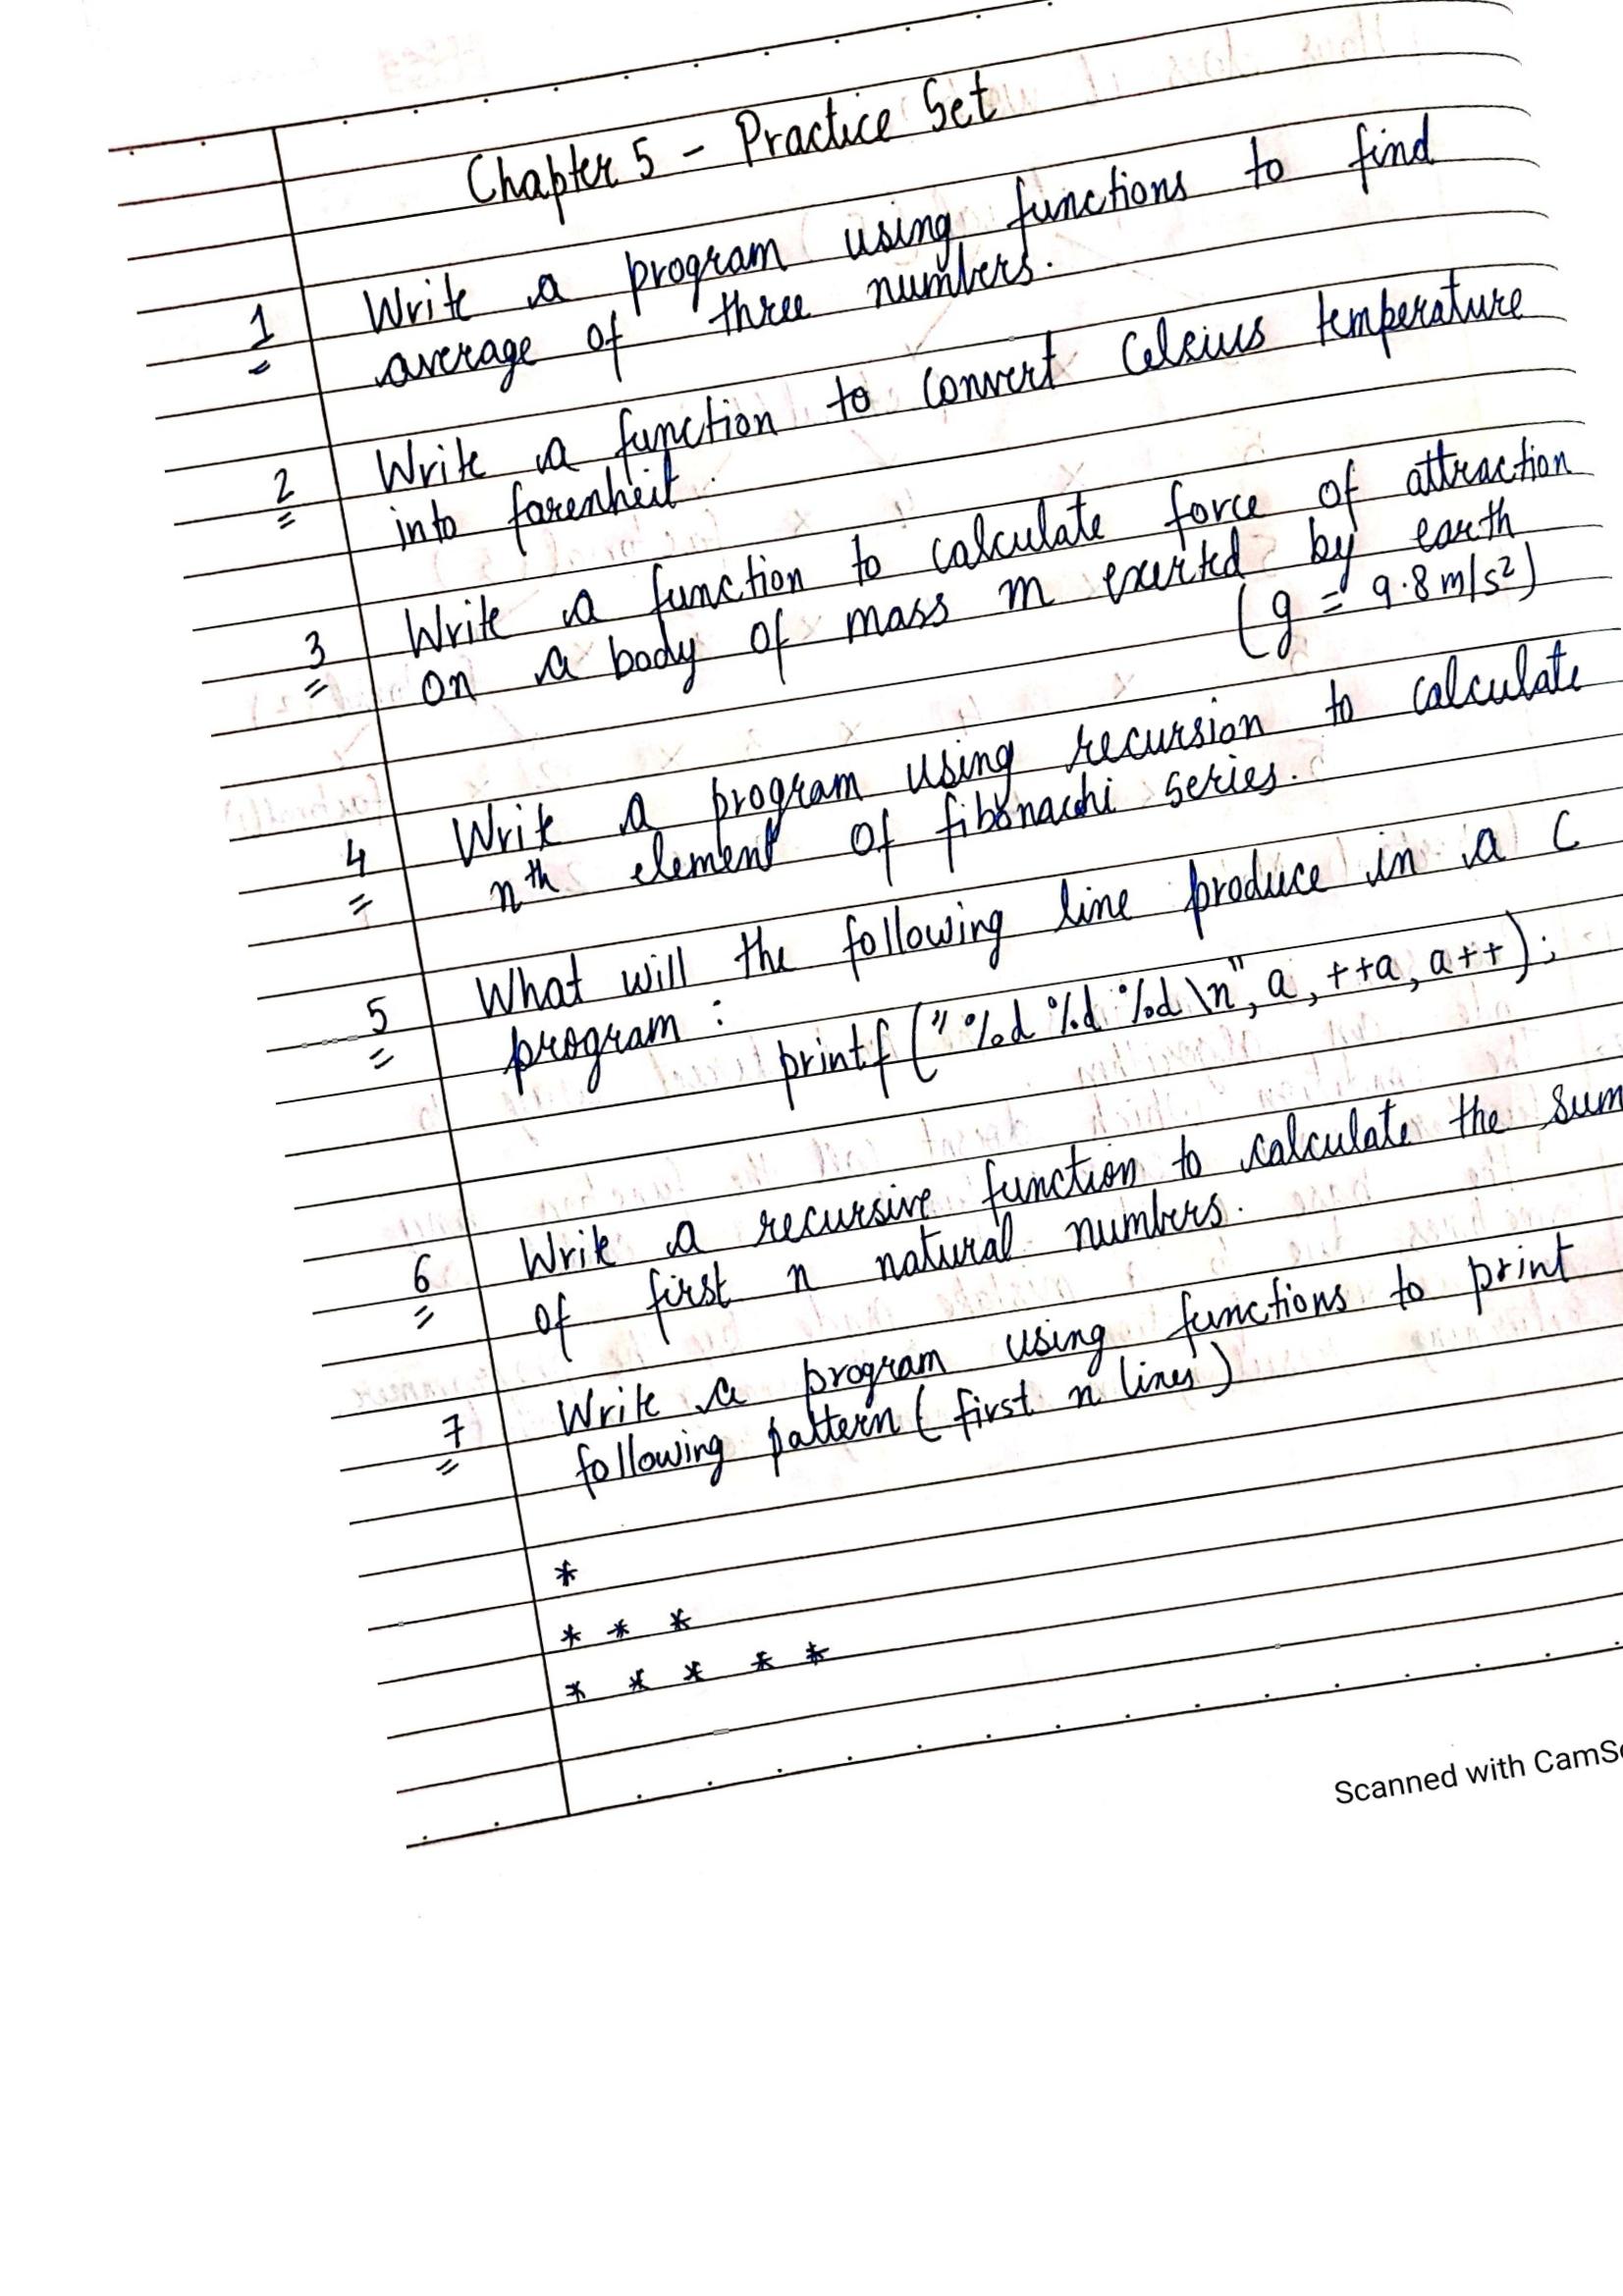 Chapter 5 - Practice Set
1 Write a program using functions to find
average of three numbers.
2 Write a function to convert Celsius temperature
into farenheit.
3 Write a function to calculate force of attraction
on a body of mass m exerted by earth
(g = 9.8 m/s²)
4 Write a program using recursion to calculate
nth element of fibonachi series.
5 What will the following line produce in a C
program :
printf ("%d %d %d \n", a, ++a, a++);
6 Write a recursive function to calculate the sum
of first n natural numbers.
7 Write a program using functions to print
following pattern ( first n lines )
*
* * *
* * * * *
Scanned with CamSc